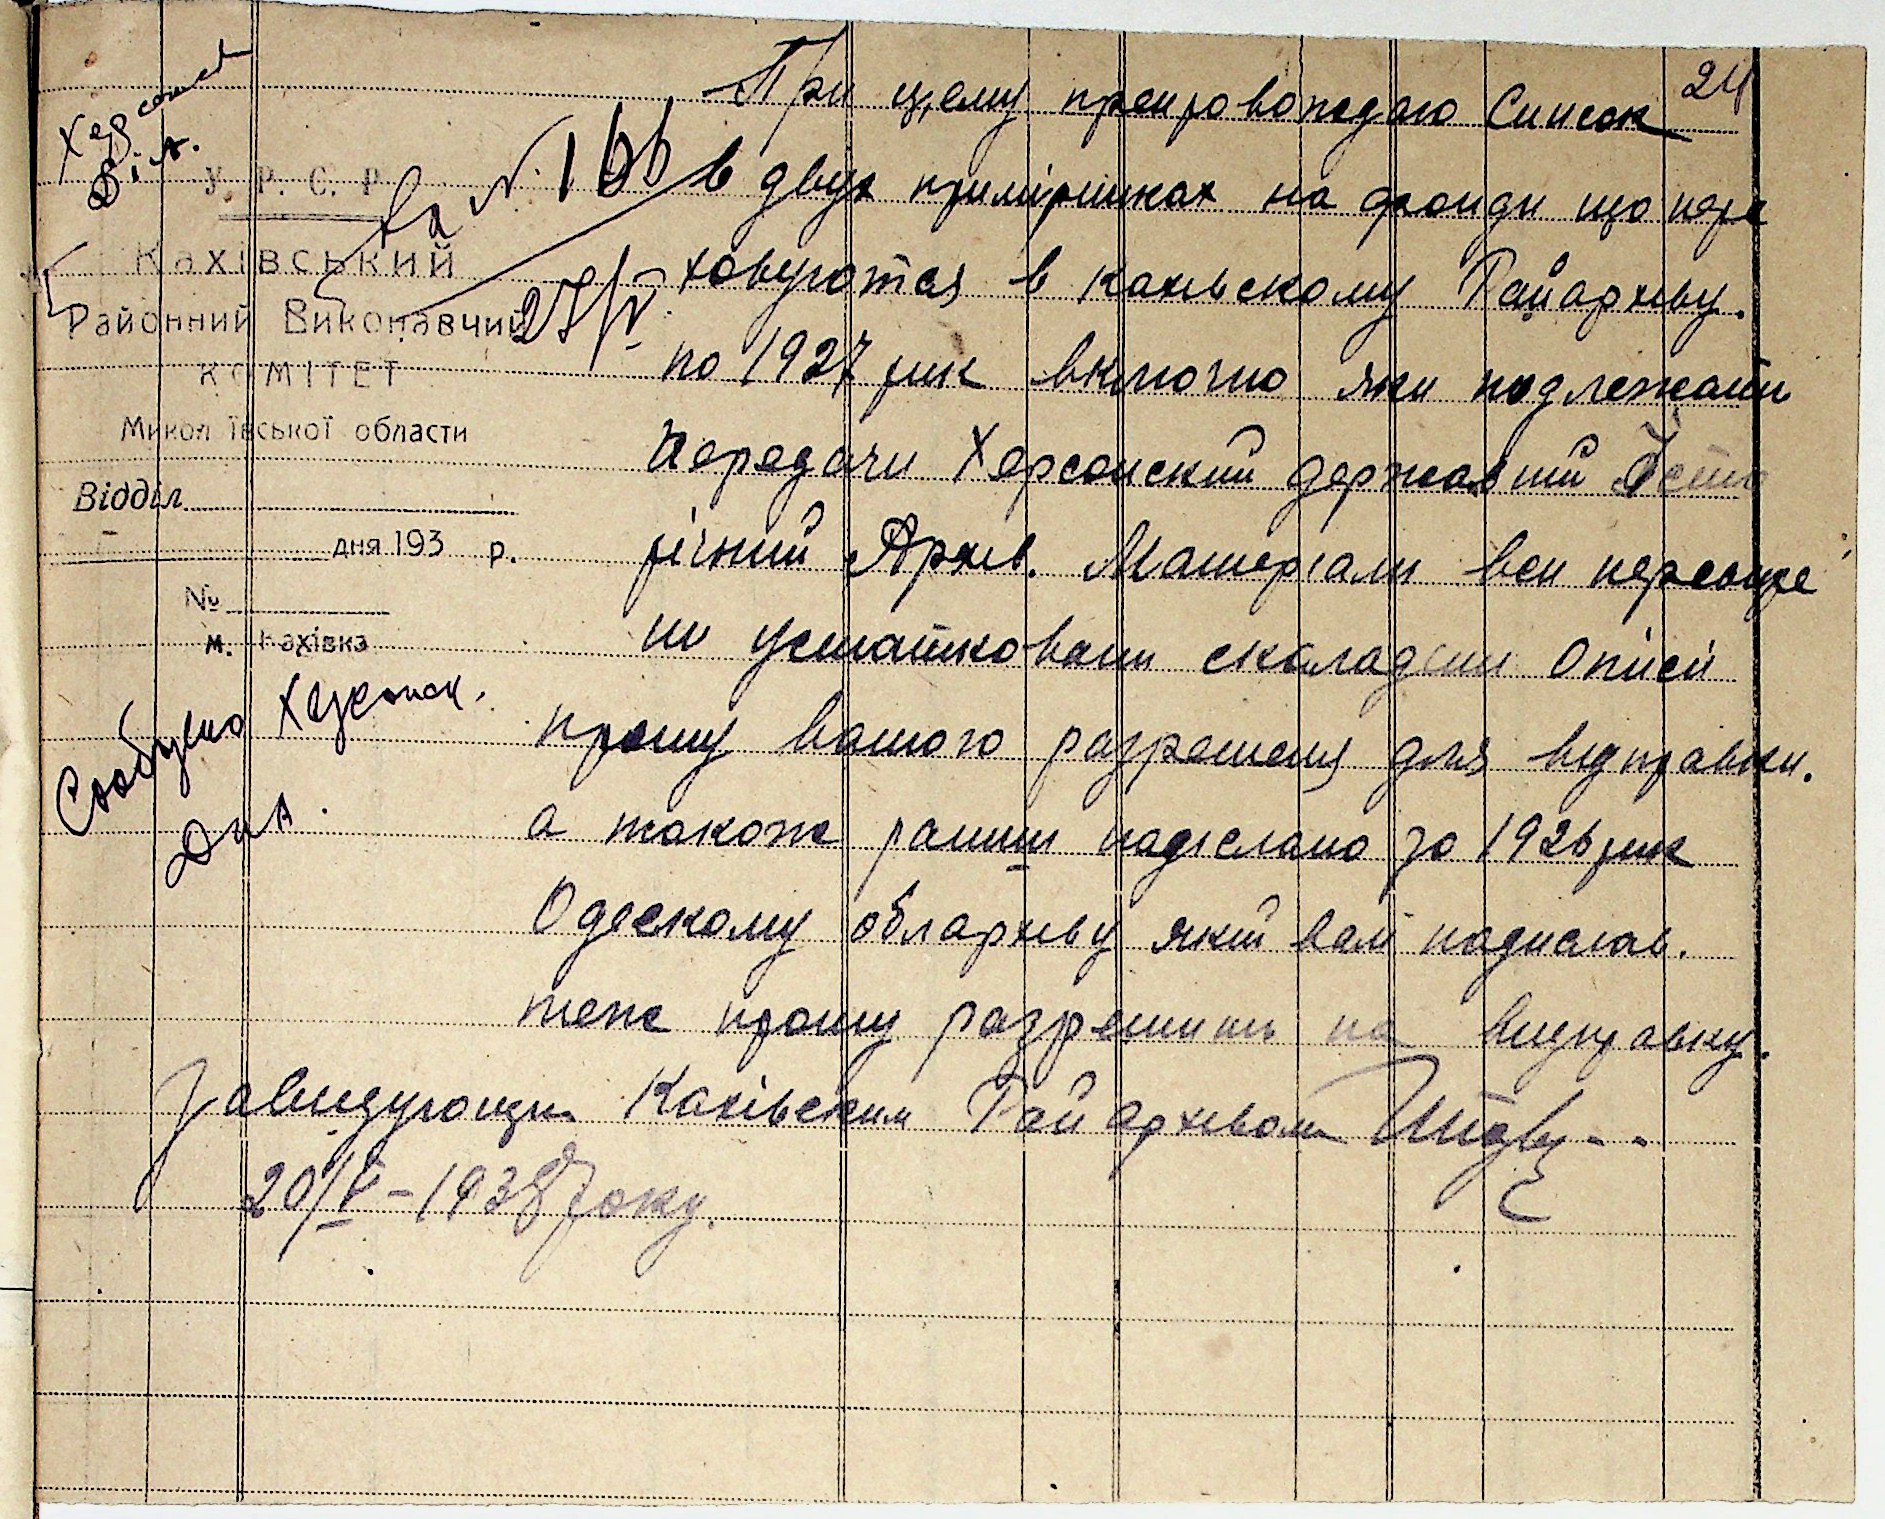 24
Херсонск
Д і А.
У. Р. С. Р.
Кахівський
Районний Виконавчий
КОМІТЕТ
Микол ївської области
Відділ
дня 193 р.
№
м. Кахівка
N 166
27/V
Сообщено Херсонск.
При цьему препровождаю Список
в двух примірниках на фонди що пере
ховуются в кахівскому Райархіву.
по 1927 рик включно яки подлежать
передачи Херсонский державний Істо
річний Архів. Матеріали вси пересмре
ни усташковани складени Описи
прошу вашого разрешеня для відправки.
а також раниш надіслано за 1926 рик
Одескому облархіву який вам надислав.
теж прошу разрешить на видправку.
Завидующи Кахівским Райархівом
20/V-1938 року.